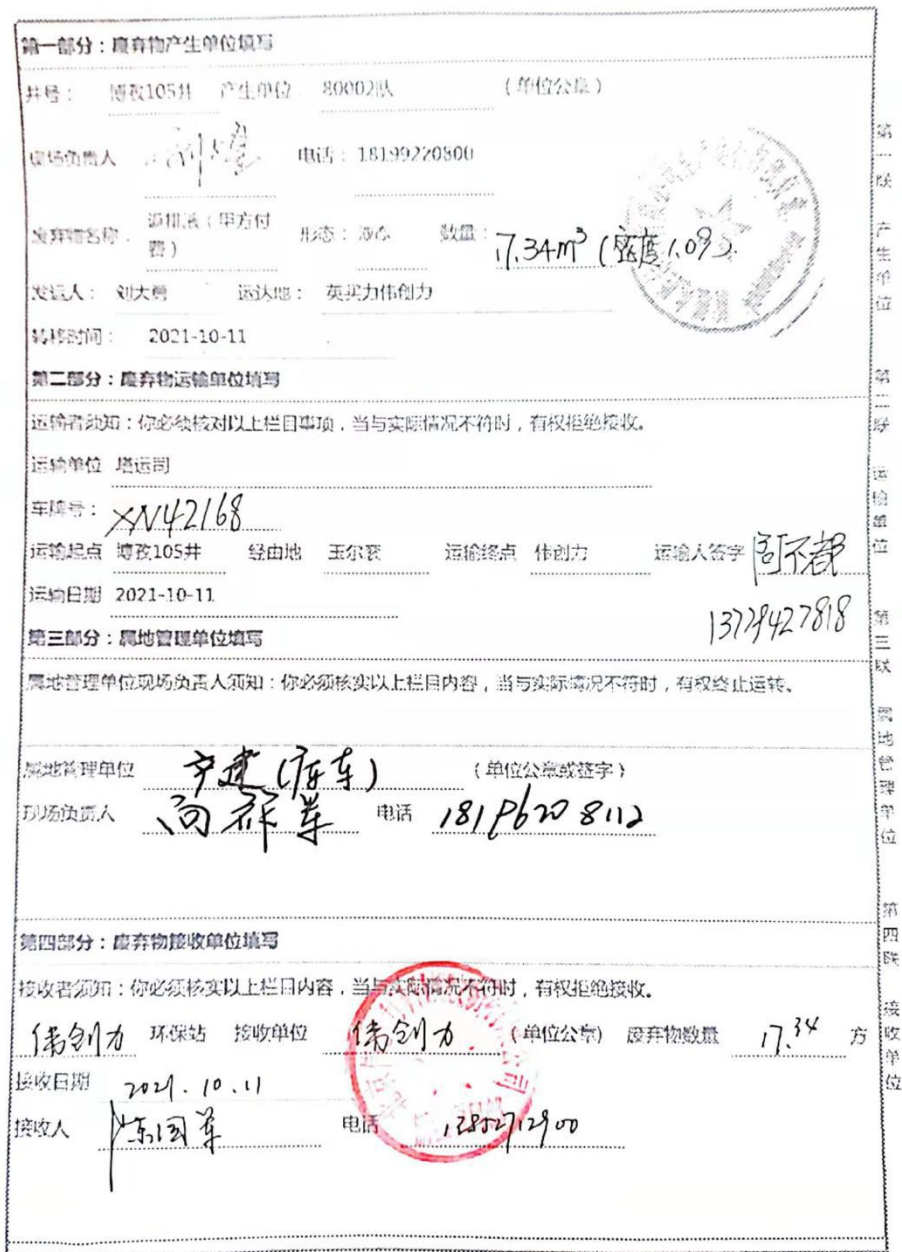 第一部分：废弃物产生单位填写
井号： 博孜105井 产生单位 80002队 （单位公章）
现场负责人 电话：18199220800
废弃物名称： 返排液（甲方付费） 形态：液态 数量： 17.34m³（密度1.09）
发运人： 刘大勇 运达地： 英买力伟创力
转移时间： 2021-10-11
第二部分：废弃物运输单位填写
运输者须知：你必须核对以上栏目事项，当与实际情况不符时，有权拒绝接收。
运输单位 塔运司
车牌号： XN42168
运输起点 博孜105井 经由地 玉尔衮 运输终点 伟创力 运输人签字
运输日期 2021-10-11
13779427818
第三部分：属地管理单位填写
属地管理单位现场负责人须知：你必须核实以上栏目内容，当与实际情况不符时，有权终止运转。
属地管理单位 （库车） （单位公章或签字）
现场负责人 电话 18196208112
第四部分：废弃物接收单位填写
接收者须知：你必须核实以上栏目内容，当与实际情况不符时，有权拒绝接收。
伟创力 环保站 接收单位 伟创力 （单位公章） 废弃物数量 17.34 方
接收日期 2021.10.11
接收人 陈国军 电话
第一联 产生单位
第二联 运输单位
第三联 属地管理单位
第四联 接收单位